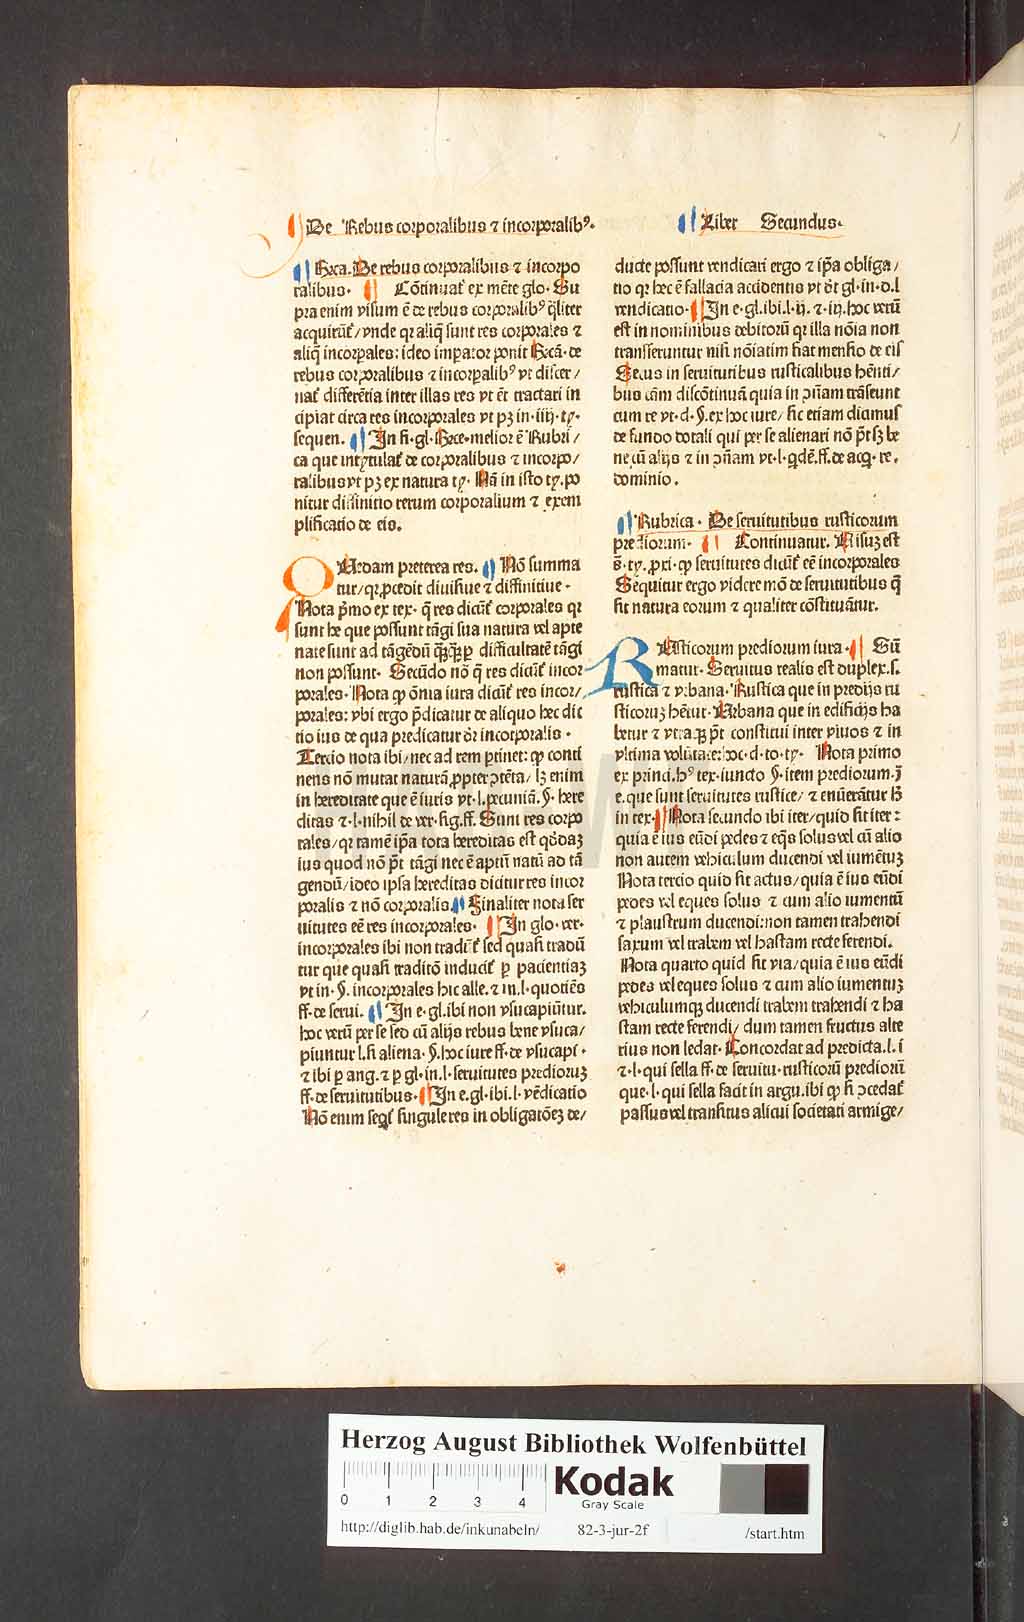 De Rebus corporalibus ⁊ incorporalibꝰ.
Liber Secundus.
Hrca. De rebus corporalibus ⁊ incorpo
ralibus. Cōtinuat᷑ ex mēte glo. Su
pra enim visum ē de rebus corporalibꝰ q̄liter
acquirūt᷑/ vnde qꝛ aliq̄ sunt res corporales ⁊
aliq̄ incorpales: ideo impator ponit Hrcā. de
rebus corporalibus ⁊ incorꝑalibꝰ vt discer/
nat᷑ differētia inter illas res vt ēt tractari in
cipiat circa res incorporales vt pꝫ in. iiij. ty.
sequen. In fi. gl. Hrce. melior ē Rubri/
ca que intytulat᷑ de corporalibus ⁊ incorpo/
ralibus vt pꝫ ex natura ty. Nā in isto ty. po
nitur diffinitio rerum corporalium ⁊ exem
plificatio de eis.
QUedam preterea res. Nō summa
tur/ qꝛ ꝓcedit diuisiue ⁊ diffinitiue.
Nota pͥmo ex tex. q̄ res dicūt᷑ corporales qꝛ
sunt he que possunt tāgi sua natura vel apte
nate sunt ad tāgēdū q̄ꝙꝫ ꝑ difficultatē tāgi
non possunt. Secūdo nō q̄ res dicūt᷑ incor
porales. Nota ꝙ ōnia iura dicūt᷑ res incor/
porales: vbi ergo p̄dicatur de aliquo hec dic
tio ius de qua predicatur dr̄ incorporalis.
Tercio nota ibi/ nec ad rem ꝑtinet: ꝙ conti
nens nō mutat naturā ꝓpter ↄtēta/ lꝫ enim
in hereditate que ē iuris vt. l. pecuniā. §. here
ditas ⁊. l. nihil de ver. sig. ff. Sunt res corpo
rales/ qꝛ tamē ip̄a tota hereditas est qͦddaꝫ
ius quod nō pͭ tāgi nec ē aptū natū ad tā
gendū/ ideo ipsa hereditas dicitur res incor
poralis ⁊ nō corporalis. Finaliter nota ser
uitutes eē res incorporales. In glo. ver.
incorporales ibi non tradit᷑ sed quasi tradū
tur que quasi traditō inducit᷑ ꝑ pacientiaꝫ
vt in. §. incorporales hic alle. ⁊ in. l. quotiēs
ff. de serui. In e. gl. ibi non vsucapiūtur.
hoc verū per se sed cū alijs rebus bene vsuca/
piuntur l. si aliena. §. hoc iure ff. de vsucapi.
⁊ ibi ꝑ ang. ⁊ ꝑ gl. in. l. seruitutes predioruꝫ
ff. de seruitutibus. In e. gl. ibi. l. vēdicatio
Nō enim seqͥt᷑ singule res in obligatōeꝫ de/
ducte possunt vendicari ergo ⁊ ip̄a obliga/
tio qꝛ hec ē fallacia accidentis vt dr̄ gl. in. d. l
vendicatio. In e. gl. ibi. l. ij. ⁊. iij. hoc verū
est in nominibus debitorū qꝛ illa nōia non
transferuntur nisi nōiatim fiat mensio de eis
Secus in seruitutibus rusticalibus hn̄ti/
bus cām discōtinuā quia in ↄn̄am trāseunt
cum re vt. d. §. ex hoc iure/ sic etiam dicimus
de fundo dotali qui per se alienari nō pͭ sꝫ be
ne cū alijs ⁊ in ↄn̄am vt. l. qͥdē. ff. de acq̄. re.
dominio.
Rubrica. De seruitutibus rusticorum
prediorum. Continuatur. Uisuꝫ est
s̄. ty. pxi. ꝙ seruitutes dicūt᷑ eē incorporales
Sequitur ergo videre mō de seruitutibus q̄
sit natura eorum ⁊ qualiter cōstituātur.
RUsticorum prediorum iura. Sū
matur. Seruitus realis est duplex. s.
rustica ⁊ vrbana. Rustica que in predijs ru
sticoruꝫ hētur. Urbana que in edificijs ha
betur ⁊ vtraqꝫ pͭ constitui inter viuos ⁊ in
vltima volūtate: hoc. d. to. ty. Nota primo
ex princi. hꝰ tex. iuncto §. item prediorum. ī
e. que sunt seruitutes rustice/ ⁊ enūerātur hͥ
in tex. Nota secundo ibi iter/ quid sit iter:
quia ē ius eūdi pedes ⁊ eq̄s solus vel cū alio
non autem vehiculum ducendi vel iumētuꝫ
Nota tercio quid sit actus/ quia ē ius eūdi
pedes vel eques solus ⁊ cum alio iumentū
⁊ plaustrum ducendi: non tamen trahendi
saxum vel trabem vel hastam recte ferendi.
Nota quarto quid sit via/ quia ē ius eūdi
pedes vel eques solus ⁊ cum alio iumentuꝫ
vehiculumqꝫ ducendi trabem trahendi ⁊ ha
stam recte ferendi/ dum tamen fructus alte
rius non ledat. Concordat ad predicta. l. i
⁊. l. qui sella ff. de seruitu. rusticorū prediorū
que. l. qui sella facit in argu. ibi ꝙ si ↄcedat᷑
passus vel transitus alicui societati armige/
HAB WF
Herzog August Bibliothek Wolfenbüttel
0 1 2 3 4
Kodak
Gray Scale
http://diglib.hab.de/inkunabeln/ 82-3-jur-2f /start.htm